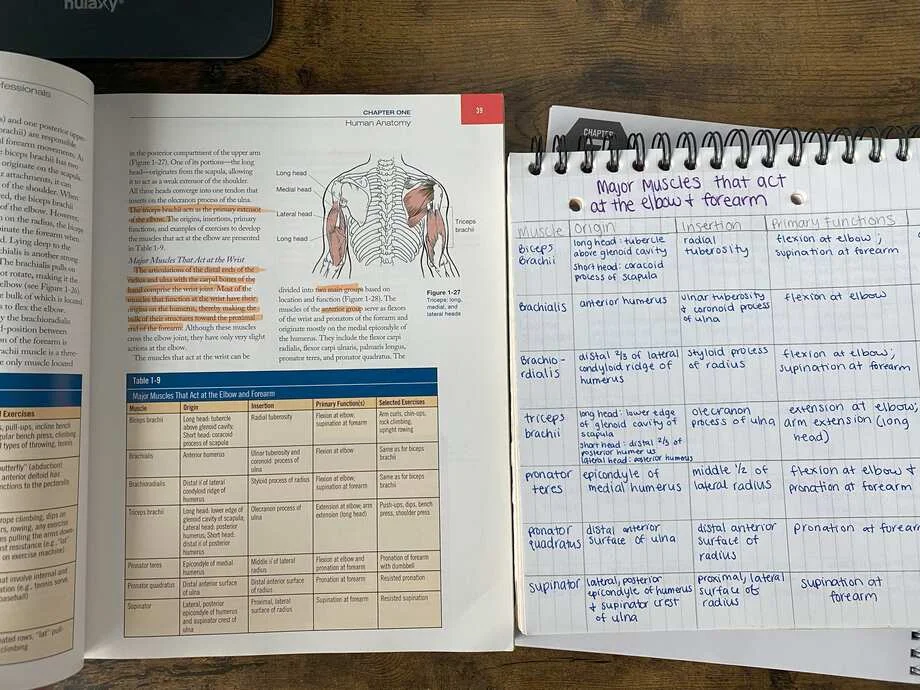 nulaxy
s) and one posterior upper-
brachii) are responsible
forearm movements. As
e biceps brachii has two
originate on the scapula.
attachments, it can
of the shoulder. When
red, the biceps brachii
of the elbow. However,
on the radius, the biceps
inate the forearm when
d. Lying deep to the
achialis is another strong
The brachialis pulls on
ot rotate, making it the
elbow (see Figure 1-26)
e bulk of which is located
s to flex the elbow.
by the brachioradialis
d-position between
on of the forearm is
rachii muscle is a three-
e only muscle located
d Exercises
s, pull-ups, incline bench
gular bench press, climbing
d types of throwing, tennis
utterfly" (abduction)
anterior deltoid has
nctions to the pectoralis
rope climbing, dips on
rs, rowing, any exercise
es pulling the arms down
st resistance (e.g., "lat"
on exercise machine)
at involve internal and
ation (e.g., tennis serve,
baseball)
ated rows, "lat" pull-
climbing
CHAPTER ONE
Human Anatomy
39
in the posterior compartment of the upper arm
(Figure 1-27). One of its portions—the long
head—originates from the scapula, allowing
it to act as a weak extensor of the shoulder.
All three heads converge into one tendon that
inserts on the olecranon process of the ulna.
The triceps brachii acts as the primary extensor
of the elbow. The origins, insertions, primary
functions, and examples of exercises to develop
the muscles that act at the elbow are presented
in Table 1-9.
Major Muscles That Act at the Wrist
The articulations of the distal ends of the
radius and ulna with the carpal bones of the
hand comprise the wrist joint. Most of the
muscles that function at the wrist have their
origins on the humerus, thereby making the
bulk of their structures toward the proximal
end of the forearm. Although these muscles
cross the elbow joint, they have only very slight
actions at the elbow.
The muscles that act at the wrist can be
Long head
Medial head
Lateral head
Long head
Triceps
brachii
divided into two main groups based on
location and function (Figure 1-28). The
muscles of the anterior group serve as flexors
of the wrist and pronators of the forearm and
originate mostly on the medial epicondyle of
the humerus. They include the flexor carpi
radialis, flexor carpi ulnaris, palmaris longus,
pronator teres, and pronator quadratus. The
Figure 1-27
Triceps: long,
medial, and
lateral heads
Table 1-9
Major Muscles That Act at the Elbow and Forearm
Muscle Origin Insertion Primary Function(s) Selected Exercises
Biceps brachii Long head: tubercle Radial tuberosity Flexion at elbow; Arm curls, chin-ups,
above glenoid cavity; supination at forearm rock climbing,
Short head: coracoid upright rowing
process of scapula
Brachialis Anterior humerus Ulnar tuberosity and Flexion at elbow Same as for biceps
coronoid process of brachii
ulna
Brachioradialis Distal ⅔ of lateral Styloid process of radius Flexion at elbow; Same as for biceps
condyloid ridge of supination at forearm brachii
humerus
Triceps brachii Long head: lower edge of Olecranon process of Extension at elbow; arm Push-ups, dips, bench
glenoid cavity of scapula; ulna extension (long head) press, shoulder press
Lateral head: posterior
humerus; Short head:
distal ⅔ of posterior
humerus
Pronator teres Epicondyle of medial Middle ⅓ of lateral Flexion at elbow and Pronation of forearm
humerus radius pronation at forearm with dumbbell
Pronator quadratus Distal anterior surface Distal anterior surface Pronation at forearm Resisted pronation
of ulna of radius
Supinator Lateral, posterior Proximal, lateral Supination at forearm Resisted supination
epicondyle of humerus surface of radius
and supinator crest of
ulna
CHAPTER
Major Muscles that act
at the elbow + forearm
Muscle Origin Insertion Primary Functions
Biceps long head: tubercle radial flexion at elbow;
Brachii above glenoid cavity tuberosity supination at forearm
Short head: coracoid
process of scapula
Brachialis anterior humerus ulnar tuberosity flexion at elbow
& coronoid process
of ulna
Brachio- distal 2/3 of lateral styloid process flexion at elbow;
rdialis condyloid ridge of of radius supination at forearm
humerus
triceps long head: lower edge olecranon extension at elbow;
brachii of glenoid cavity of process of ulna arm extension (long
scapula head)
short head: distal 2/3 of
posterior humerus
lateral head: posterior humerus
pronator epicondyle of middle 1/2 of flexion at elbow &
teres medial humerus lateral radius pronation at forearm
pronator distal anterior distal anterior pronation at forearm
quadratus surface of ulna surface of
radius
supinator lateral, posterior proximal, lateral supination at
epicondyle of humerus surface of forearm
& supinator crest radius
of ulna